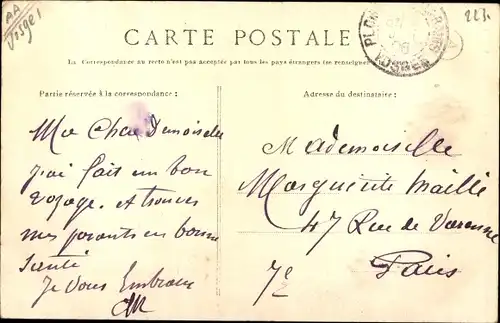 AA
V2591
223.
CARTE POSTALE
La Correspondance au recto n'est pas acceptée par tous les pays étrangers (se renseigner
Partie réservée à la correspondance:
Adresse du destinataire:
PLOMB
VOSGES
Ma Chère Demoiselle
j'ai fait un bon
voyage. et trouvé
mes parents en bonne
santé
Je vous Embrasse
Mademoiselle
Marguerite Maillé
47 Rue de Varenne
Paris
7e